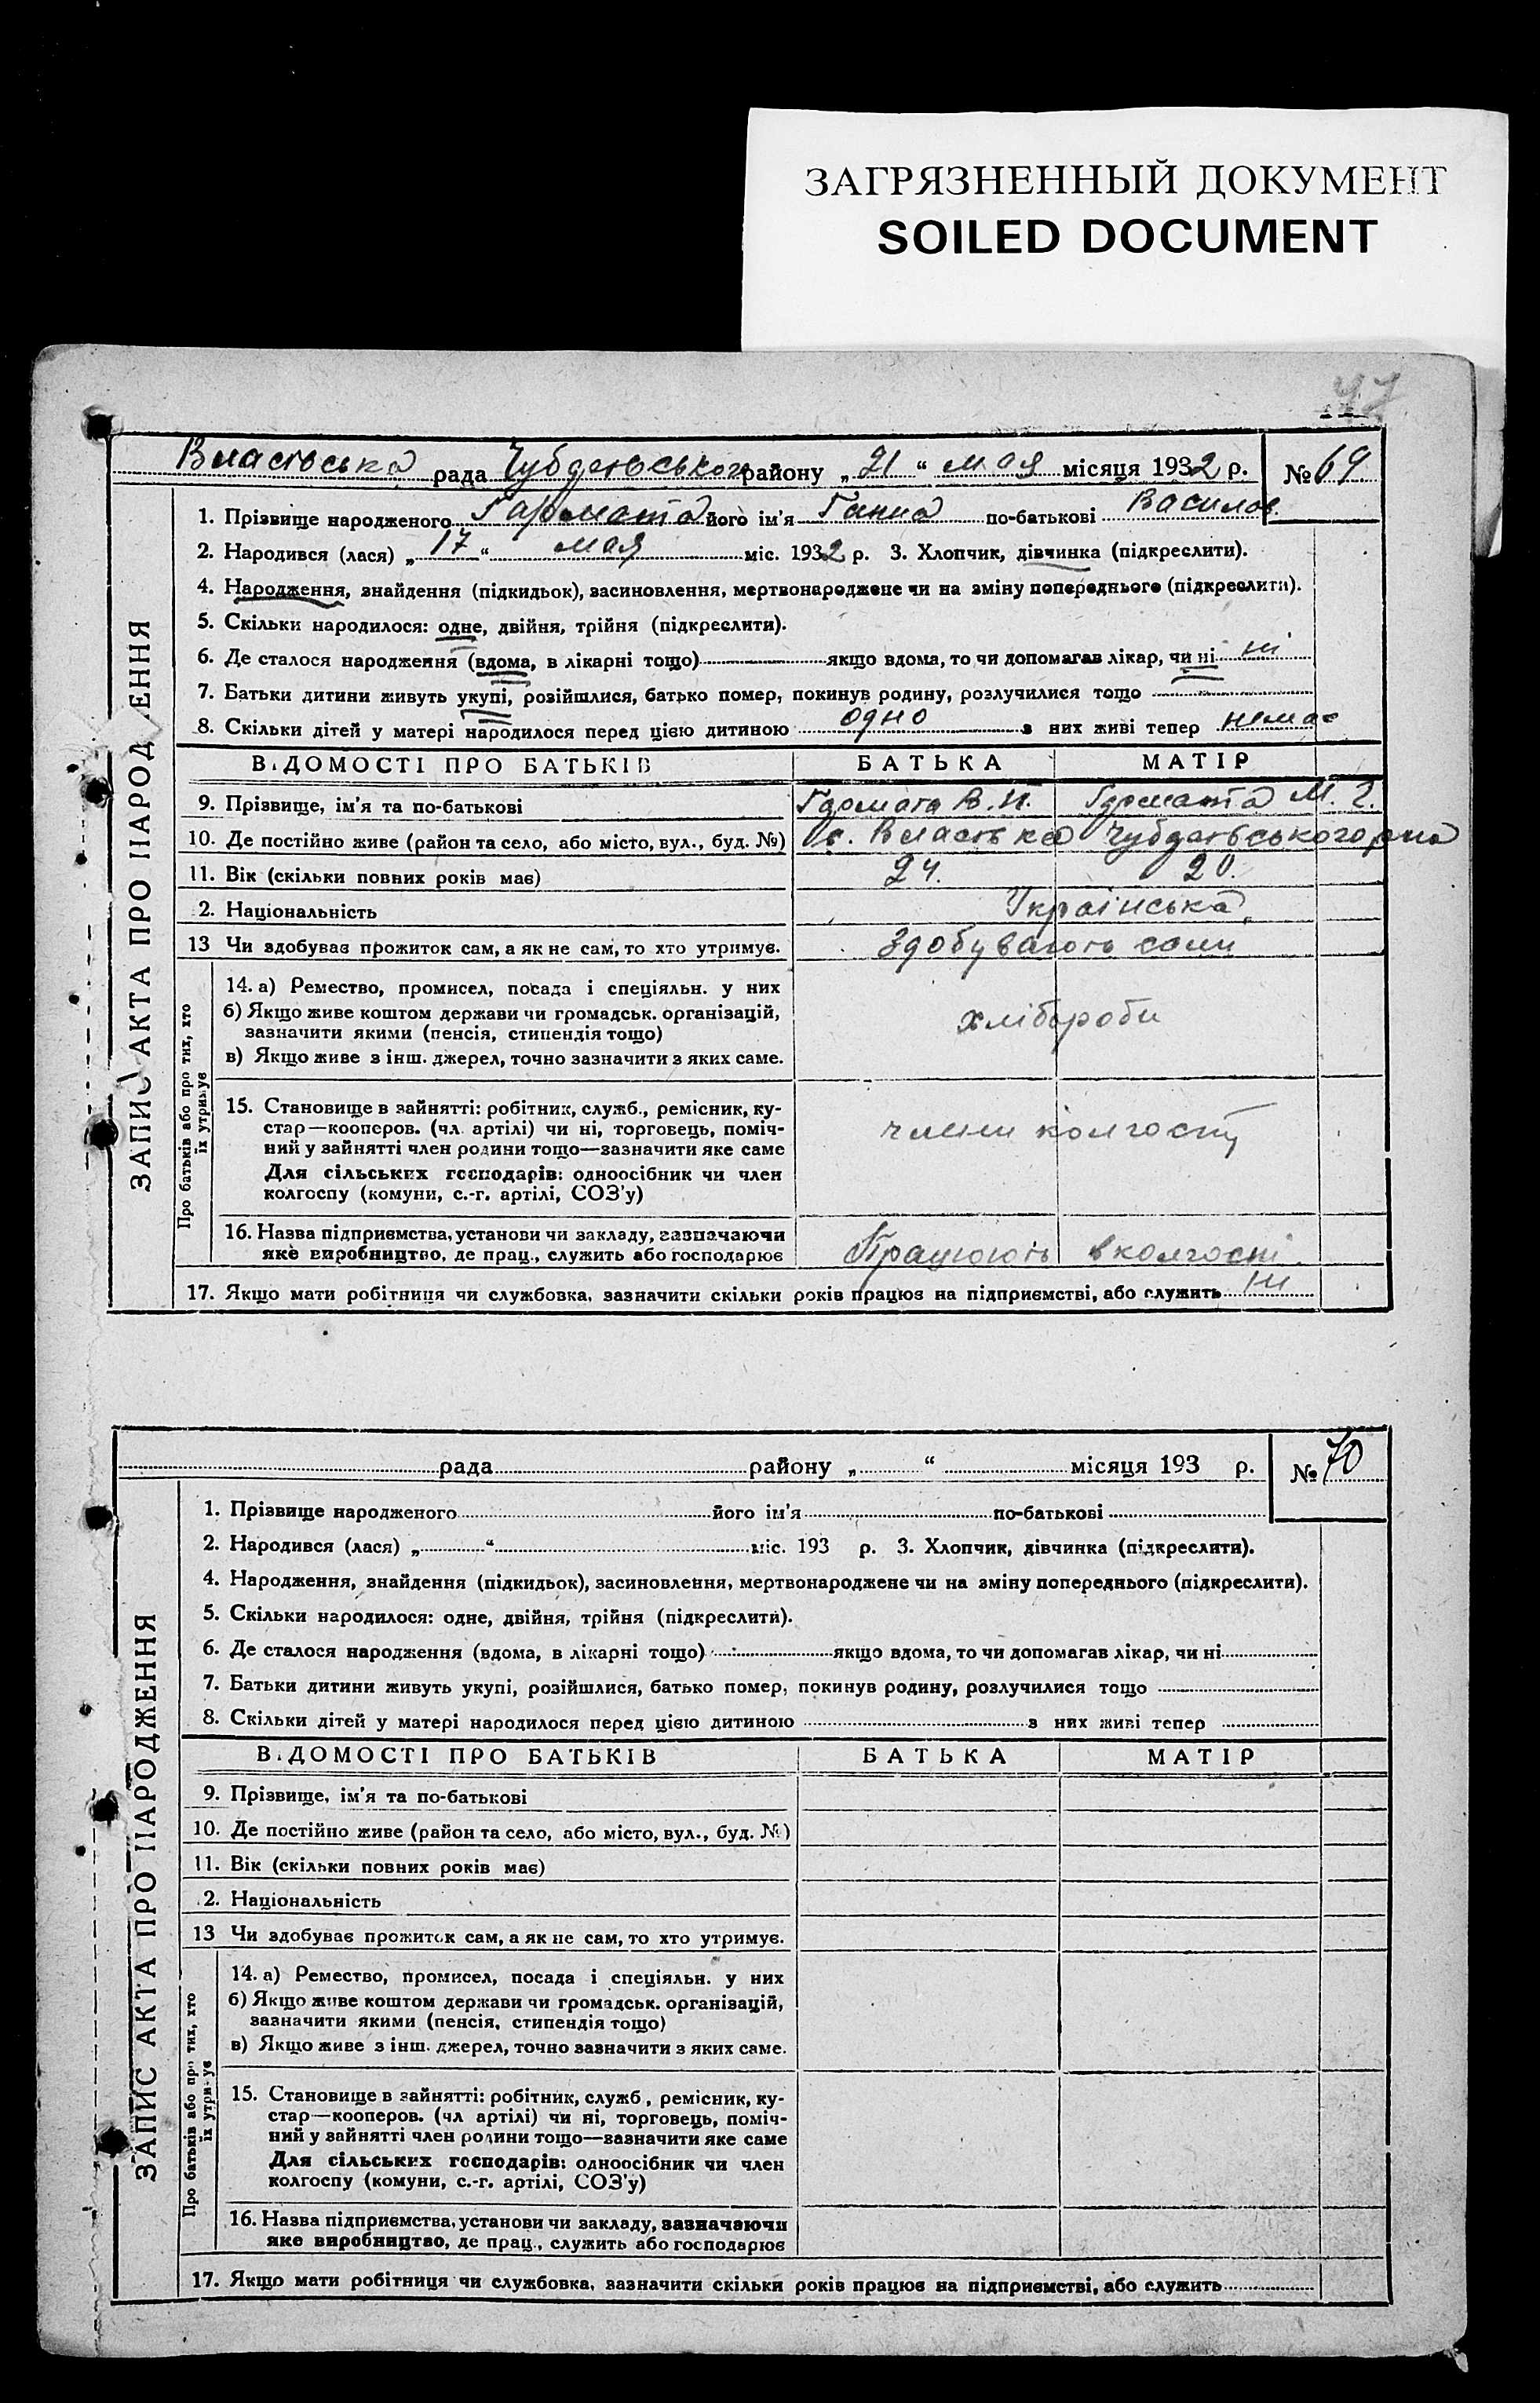 ЗАГРЯЗНЕННЫЙ ДОКУМЕНТ
SOILED DOCUMENT
47
Власівська рада Чубарівського району „ 21 “ мая місяця 1932 р. № 69
1. Прізвище народженого Гармата його ім'я Ганна по-батькові Василов.
2. Народився (лася) „ 17 “ мая міс. 1932 р. 3. Хлопчик, дівчинка (підкреслити).
4. Народження, знайдення (підкидьок), засиновлення, мертвонароджене чи на зміну попереднього (підкреслити).
5. Скільки народилося: одне, двійня, трійня (підкреслити).
6. Де сталося народження (вдома, в лікарні тощо) якщо вдома, то чи допомагав лікар, чи ні ні
7. Батьки дитини живуть укупі, розійшлися, батько помер, покинув родину, розлучилися тощо
8. Скільки дітей у матері народилося перед цією дитиною одно з них живі тепер немає
ЗАПИС АКТА ПРО НАРОД ЕННЯ
ВІДОМОСТІ ПРО БАТЬКІВ БАТЬКА МАТІР
9. Прізвище, ім'я та по-батькові Гармата В. И. Гармата М. Г.
10. Де постійно живе (район та село, або місто, вул., буд. №) с. Власівка Чубарівського рна
11. Вік (скільки повних років має) 24. 20.
2. Національність Українська
13 Чи здобуває прожиток сам, а як не сам, то хто утримує. Здобувають сами
Про батьків або про тих, хто їх утримує
14. а) Ремество, промисел, посада і спеціяльн. у них
б) Якщо живе коштом держави чи громадськ. організацій,
зазначити якими (пенсія, стипендія тощо) хлібороби
в) Якщо живе з інш. джерел, точно зазначити з яких саме.
15. Становище в зайнятті: робітник, служб., ремісник, ку-
стар—кооперов. (чл. артілі) чи ні, торговець, поміч-
ний у зайнятті член родини тощо—зазначити яке саме члени колгоспу
Для сільських господарів: одноосібник чи член
колгоспу (комуни, с.-г. артілі, СОЗ'у)
16. Назва підприємства, установи чи закладу, зазначаючи
яке виробництво, де прац., служить або господарює Працюють в колгоспі
17. Якщо мати робітниця чи службовка, зазначити скільки років працює на підприємстві, або служить ні
рада району „ “ місяця 193 р. № 70
1. Прізвище народженого його ім'я по-батькові
2. Народився (лася) „ “ міс. 193 р. 3. Хлопчик, дівчинка (підкреслити).
4. Народження, знайдення (підкидьок), засиновлення, мертвонароджене чи на зміну попереднього (підкреслити).
5. Скільки народилося: одне, двійня, трійня (підкреслити).
6. Де сталося народження (вдома, в лікарні тощо) якщо вдома, то чи допомагав лікар, чи ні
7. Батьки дитини живуть укупі, розійшлися, батько помер, покинув родину, розлучилися тощо
8. Скільки дітей у матері народилося перед цією дитиною з них живі тепер
ЗАПИС АКТА ПРО НАРОДЖЕННЯ
ВІДОМОСТІ ПРО БАТЬКІВ БАТЬКА МАТІР
9. Прізвище, ім'я та по-батькові
10. Де постійно живе (район та село, або місто, вул., буд. №)
11. Вік (скільки повних років має)
2. Національність
13 Чи здобуває прожиток сам, а як не сам, то хто утримує.
Про батьків або про тих, хто їх утримує
14. а) Ремество, промисел, посада і спеціяльн. у них
б) Якщо живе коштом держави чи громадськ. організацій,
зазначити якими (пенсія, стипендія тощо)
в) Якщо живе з інш. джерел, точно зазначити з яких саме.
15. Становище в зайнятті: робітник, служб, ремісник, ку-
стар—кооперов. (чл артілі) чи ні, торговець, поміч-
ний у зайнятті член родини тощо—зазначити яке саме
Для сільських господарів: одноосібник чи член
колгоспу (комуни, с.-г. артілі, СОЗ'у)
16. Назва підприємства, установи чи закладу, зазначаючи
яке виробництво, де прац., служить або господарює
17. Якщо мати робітниця чи службовка, зазначити скільки років працює на підприємстві, або служить